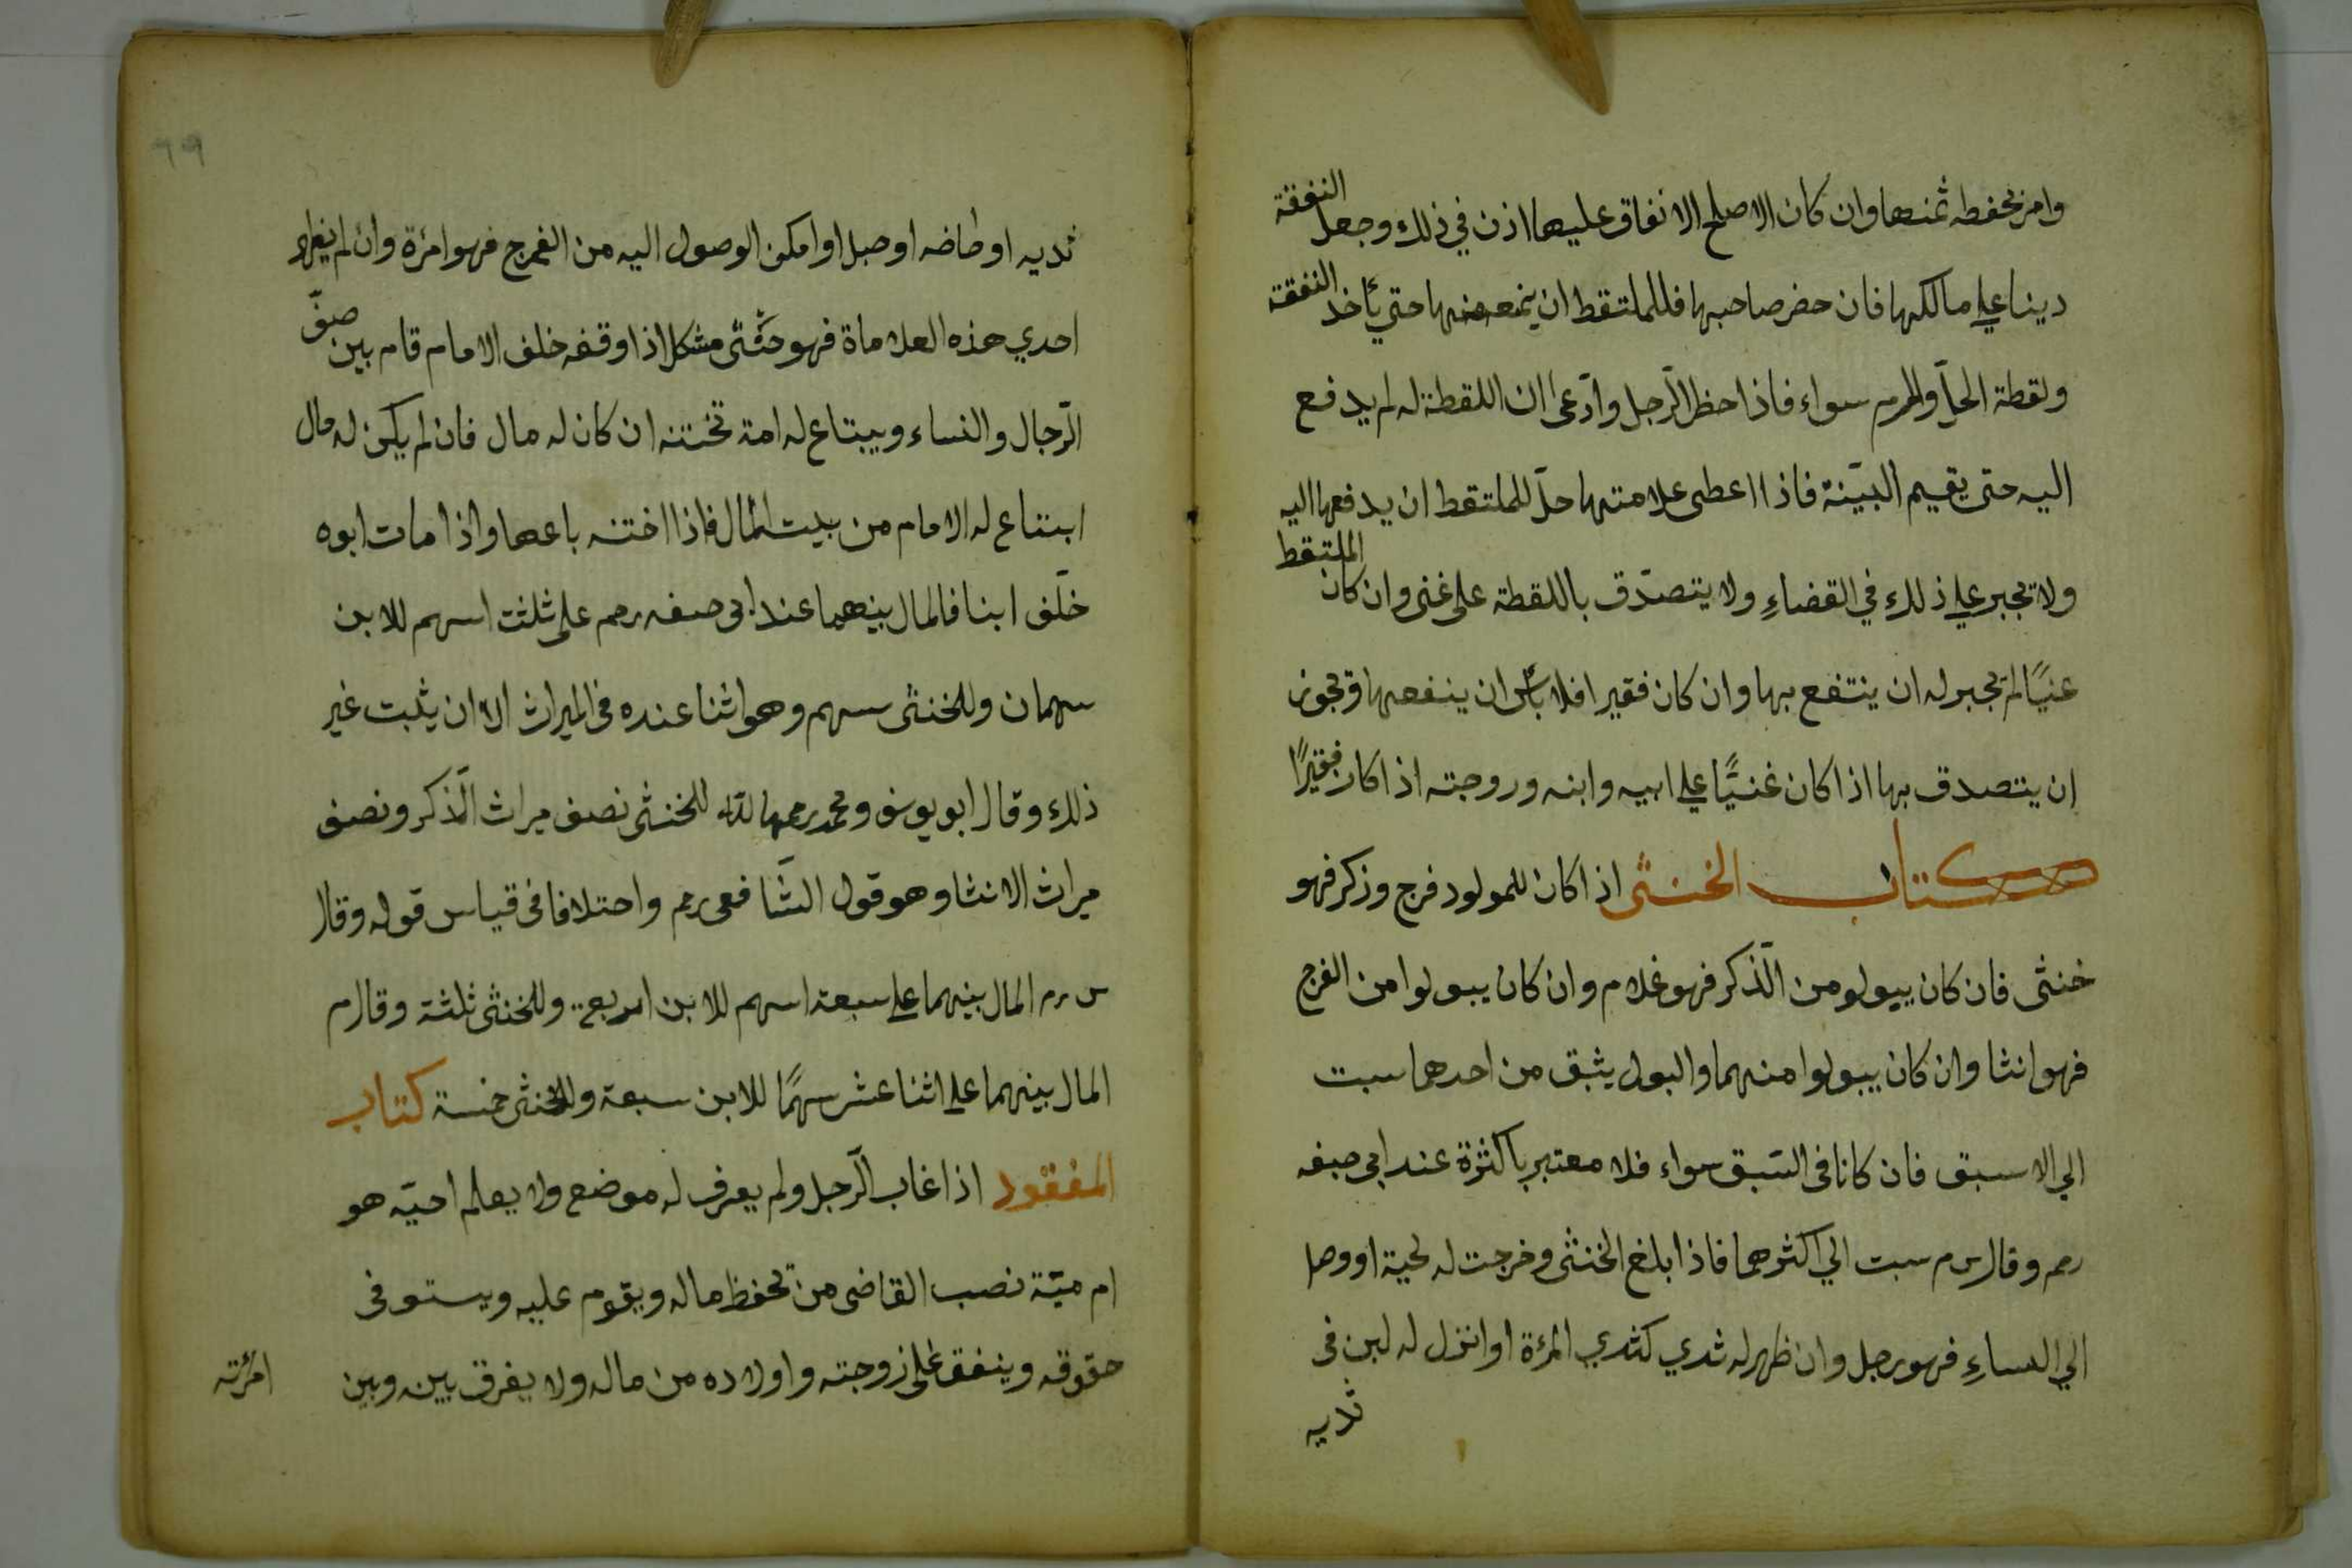 وامر بحفظه ثمنها وان كان الاصلح الانفاق عليها اذن في ذلك وجعل النفقة
دينا علي مالكها فان حضر صاحبها فللملتقط ان يمنعه منها حتي يأخذ النفقة
ولقطة الحلّ والحرم سواء فاذا حظر الرّجل وادّعى ان اللقطة له لم يدفع
اليه حتى يقيم البيّنة فاذا اعطى علامتها حلّ للملتقط ان يدفعها اليه
ولا يجبر علي ذلك في القضاءِ ولا يتصدّق باللقطة على غنى وان كان الملتقط
غنيًا لم يجبر له ان ينتفع بها وان كان فقيرا فلا بأس ان ينفعها ويجوز
ان يتصدق بها اذا كان غنيًّا علي ابيه وابنه وزوجته اذا كان فقيرًا
كتاب الخنثى اذا كان للمولود فرج وذكر فهو
خنثى فان كان يبولو من الذّكر فهو غلام وان كان يبولوا من الفرج
فهو انثا وان كان يبولوا منهما والبول يثبق من احدهما سبت
الي الاسبق فان كانا فى السّبق سواء فلا معتبر باكثرة عند ابي حنيفه
رحم وقال س م سبت الي اكثرهما فاذا بلغ الخنثى وخرجت له لحية او وصل
الي النساءِ فهو رجل وان ظهر له ثدي كثدي المرءة او انزل له لبن فى
ثديه
٦٩
ثديه او طاضه او حبل او امكن الوصول اليه من الفرج فهو امرءة وان لم يظهر
احدي هذه العلاماة فهو خنثى مشكل اذا وقفه خلف الامام قام بين صفّ
الرّجال والنساء ويبتاع له امة تختنه ان كان له مال فان لم يكن له مال
ابتاع له الامام من بيت المال فاذا اختنه باعها واذا مات ابوه
خلّف ابنا فالمال بينهما عند ابى حنيفه رحم على ثلثت اسهم للابن
سهمان وللخنثى سهم وهو انثا عنده فى الميراث الا ان يثبت غير
ذلك وقال ابو يوسف ومحمد رحمهما لله للخنثى نصف ميراث الذّكر ونصف
ميراث الانثا وهو قول الشّافعى رحم واحتلافا فى قياس قوله وقال
س رم المال بينهما علي سبعة اسهم للابن اربعة وللخنثى ثلثة وقال م
المال بينهما علي اثنا عشر سهمًا للابن سبعة وللخنثى خمسة كتاب
المفقود اذا غاب الرّجل ولم يعرف له موضع ولا يعلم احيّه هو
ام ميّة نصب القاضى من يحفظ ماله ويقوم عليه ويستوفى
حقوقه وينفق على زوجته واولاده من ماله ولا يفرق بينه وبين
امرئته